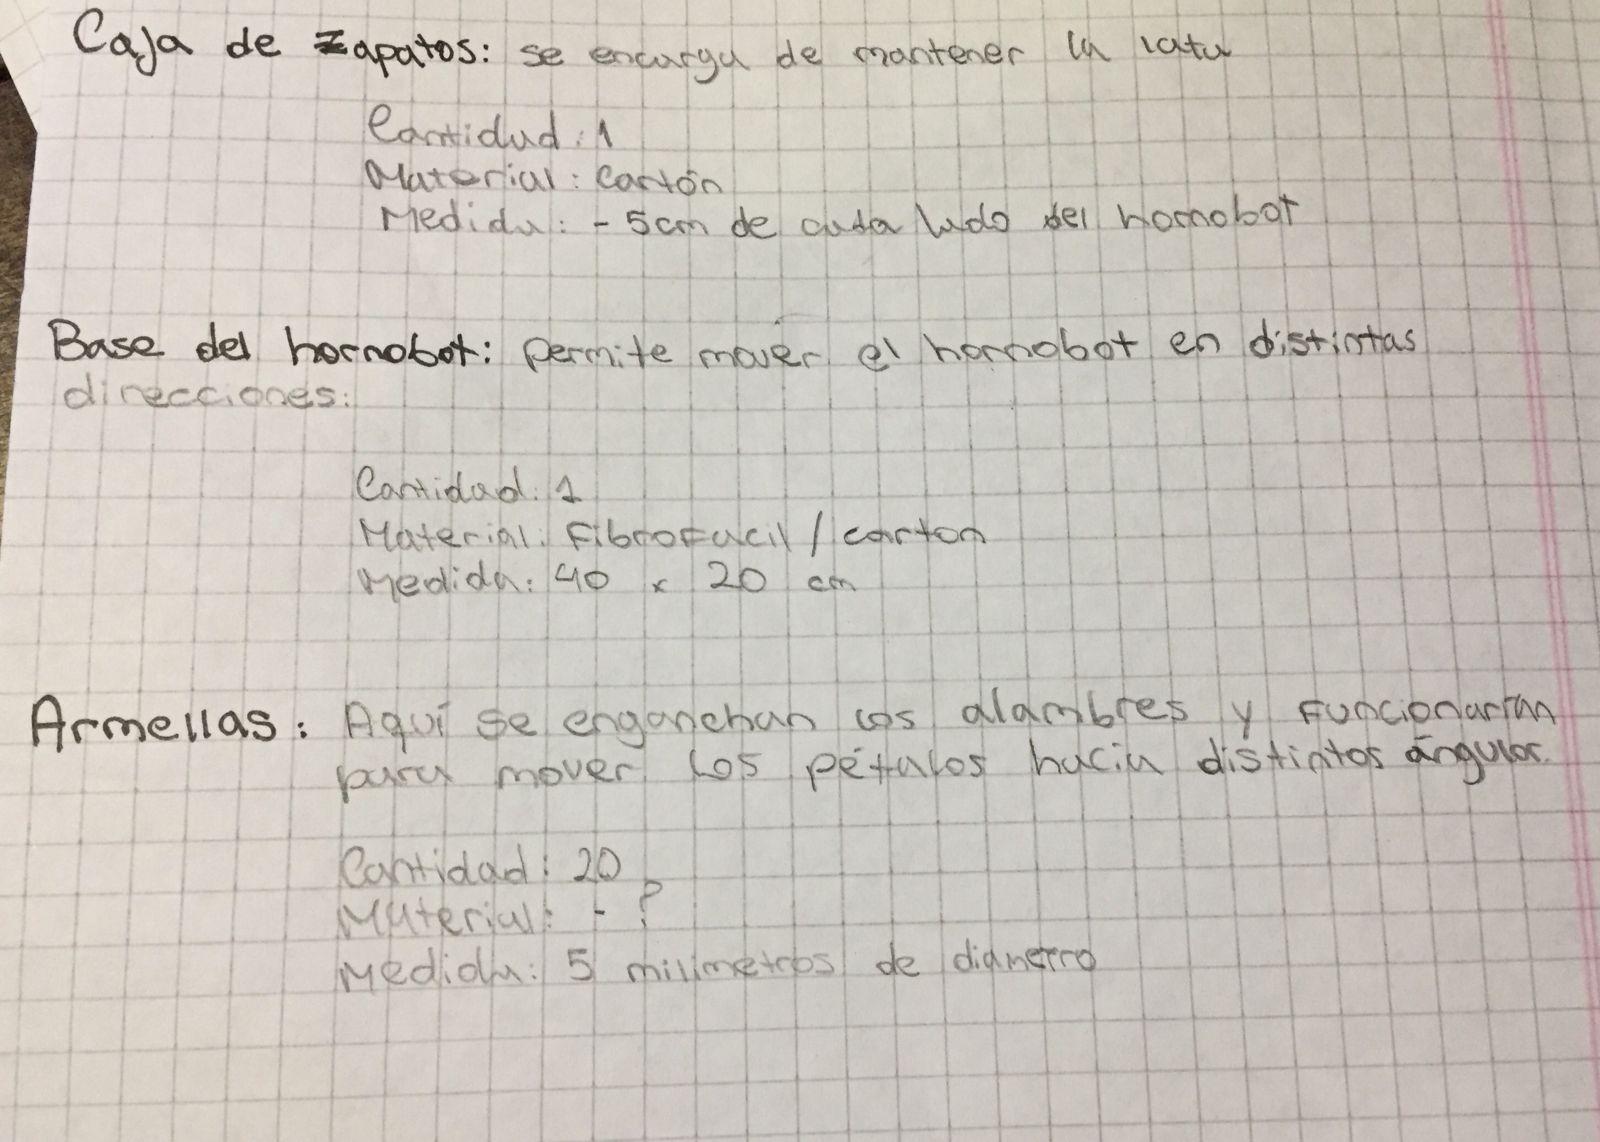 Caja de zapatos: se encarga de mantener la lata
Cantidad: 1
Material: cartón
Medida: - 5cm de cada lado del hornobot
Base del hornobot: permite mover el hornobot en distintas
direcciones:
Cantidad: 1
Material: Fibrofacil / carton
Medida: 40 x 20 cm
Armellas: Aquí se enganchan los alambres y funcionarían
para mover los pétalos hacia distintos ángulos.
Cantidad: 20
Material: - ?
Medida: 5 milimetros de diametro